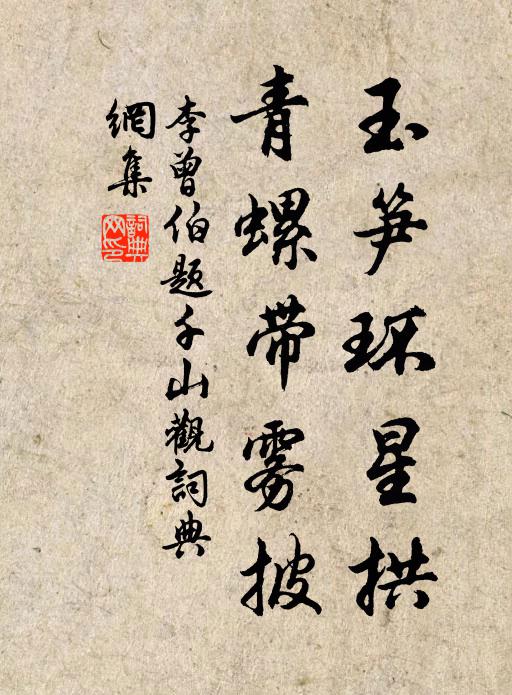 玉笋环星拱
青螺带雾披
李曾伯题千山觀詞典
網集
詞典
网印